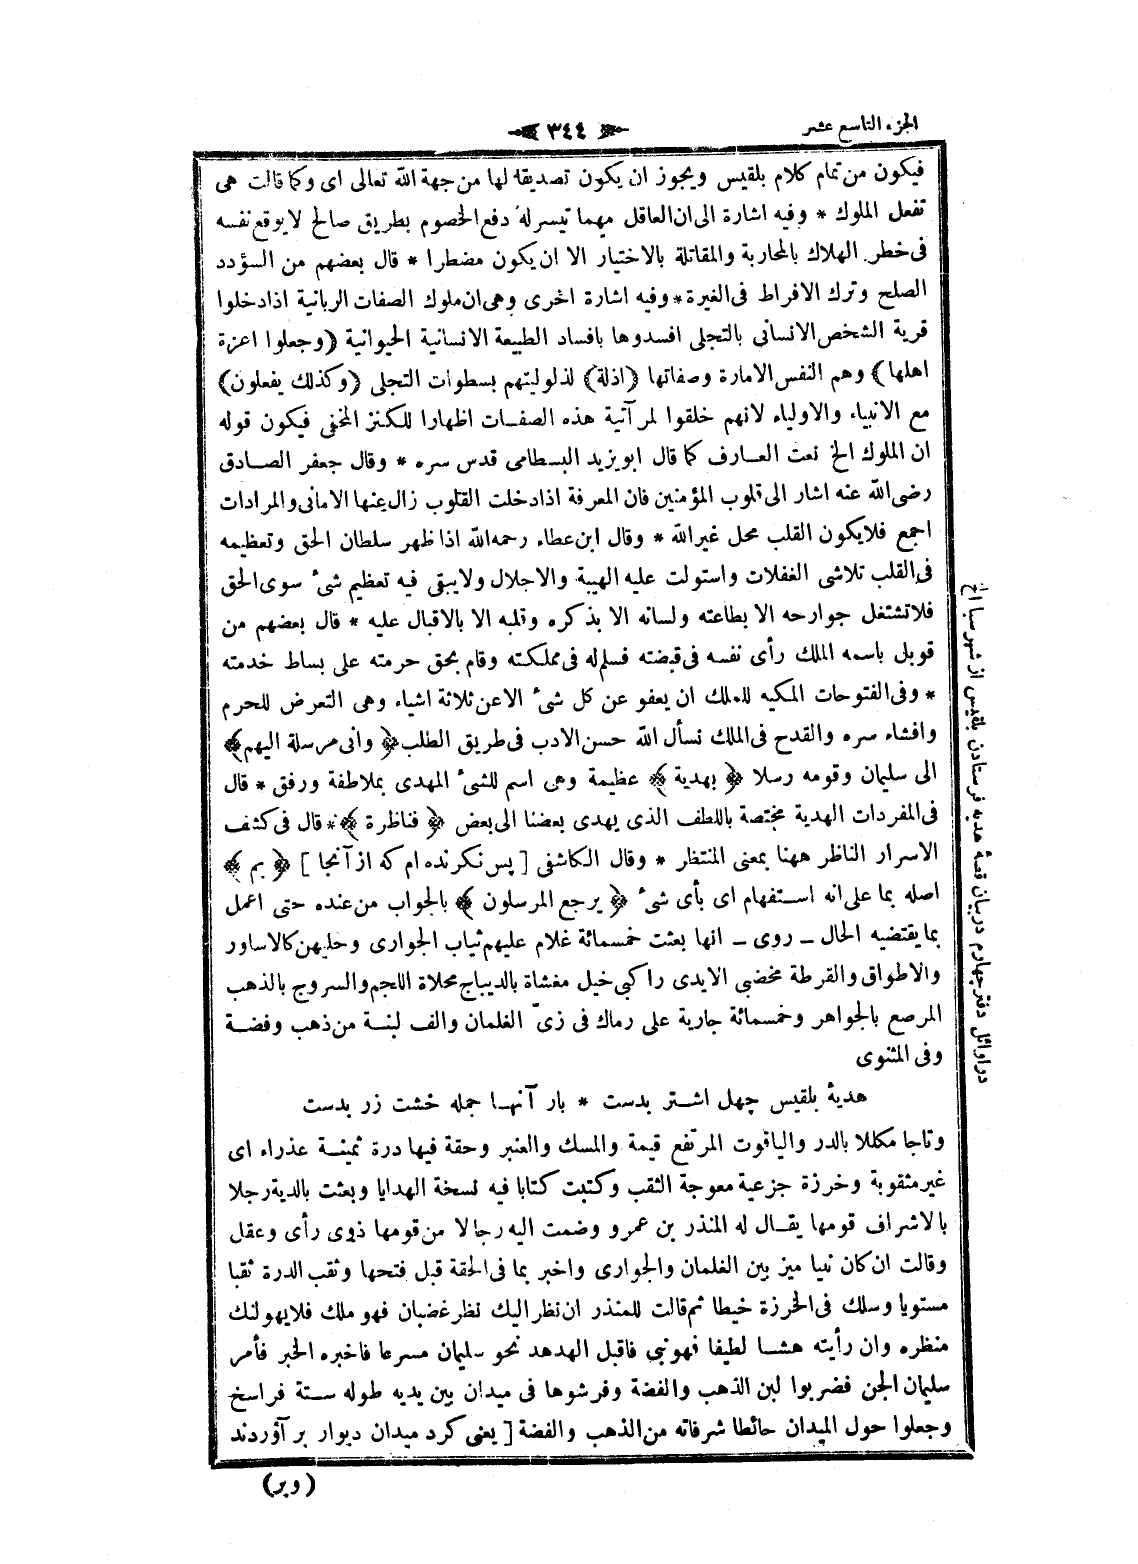 الجزء التاسع عشر
٣٤٤
فيكون من تمام كلام بلقيس ويجوز ان يكون تصديقا لها من جهة الله تعالى اى وكما قالت هى
تفعل الملوك * وفيه اشارة الى ان العاقل مهما تيسر له دفع الخصوم بطريق صالح لا يوقع نفسه
فى خطر الهلاك بالمحاربة والمقاتلة بالاختيار الا ان يكون مضطرا * قال بعضهم من السؤدد
الصلح وترك الافراط فى الغيرة * وفيه اشارة اخرى وهى ان ملوك الصفات الربانية اذا دخلوا
قرية الشخص الانسانى بالتجلى افسدوها بافساد الطبيعة الانسانية الحيوانية (وجعلوا اعزة
اهلها) وهم النفس الامارة وصفاتها (اذلة) لذلوليتهم بسطوات التجلى (وكذلك يفعلون)
مع الانبياء والاولياء لانهم خلقوا لمرآتية هذه الصفات اظهارا للكنز المخفى فيكون قوله
ان الملوك الخ نعت العارف كما قال ابو يزيد البسطامى قدس سره * وقال جعفر الصادق
رضى الله عنه اشار الى قلوب المؤمنين فان المعرفة اذا دخلت القلوب زال عنها الامانى والمرادات
اجمع فلا يكون القلب محل غير الله * وقال ابن عطاء رحمه الله اذا ظهر سلطان الحق وتعظيمه
فى القلب تلاشى الغفلات واستولت عليه الهيبة والاجلال ولا يبقى فيه تعظيم شئ سوى الحق
فلا تشتغل جوارحه الا بطاعته ولسانه الا بذكره وقلبه الا بالاقبال عليه * قال بعضهم من
قوبل باسمه الملك رأى نفسه فى قبضته فسلم له فى مملكته وقام بحق حرمته على بساط خدمته
* وفى الفتوحات المكيه للملك ان يعفو عن كل شئ الا عن ثلاثة اشياء وهى التعرض للحرم
وافشاء سره والقدح فى الملك نسأل الله حسن الادب فى طريق الطلب ﴿ وانى مرسلة اليهم ﴾
الى سليمان وقومه رسلا ﴿ بهدية ﴾ عظيمة وهى اسم للشئ المهدى بملاطفة ورفق * قال
فى المفردات الهدية مختصة باللطف الذى يهدى بعضنا الى بعض ﴿ فناظرة ﴾ * قال فى كشف
الاسرار الناظر ههنا بمعنى المنتظر * وقال الكاشفى [ پس نكرنده ام كه از آنجا ] ﴿ بم ﴾
اصله بما على انه استفهام اى بأى شئ ﴿ يرجع المرسلون ﴾ بالجواب من عنده حتى اعمل
بما يقتضيه الحال ـ روى ـ انها بعثت خمسمائة غلام عليهم ثياب الجوارى وحليهن كالاساور
والاطواق والقرطة مخضبى الايدى راكبى خيل مغشاة بالديباج محلاة اللجم والسروج بالذهب
المرصع بالجواهر وخمسمائة جارية على رماك فى زىّ الغلمان والف لبنة من ذهب وفضة
وفى المثنوى
هديۀ بلقيس چهل اشتر بدست * بار آنها جمله خشت زر بدست
وتاجا مكللا بالدر والياقوت المرتفع قيمة والمسك والعنبر وحقة فيها درة ثمينة عذراء اى
غير مثقوبة وخرزة جزعية معوجة الثقب وكتبت كتابا فيه نسخة الهدايا وبعثت بالدية رجلا
بالاشراف قومها يقال له المنذر بن عمرو وضمت اليه رجالا من قومها ذوى رأى وعقل
وقالت ان كان نبيا ميز بين الغلمان والجوارى واخبر بما فى الحقة قبل فتحها وثقب الدرة ثقبا
مستويا وسلك فى الخرزة خيطا ثم قالت للمنذر ان نظر اليك نظر غضبان فهو ملك فلا يهولنك
منظره وان رأيته هشا لطيفا فهو نبى فاقبل الهدهد نحو سليمان مسرعا فاخبره الخبر فأمر
سليمان الجن فضربوا لبن الذهب والفضة وفرشوها فى ميدان بين يديه طوله ستة فراسخ
وجعلوا حول الميدان حائطا شرفاته من الذهب والفضة [ يعنى كرد ميدان ديوار بر آوردند
(وبر)
در اوائل دفتر چهارم در بيان قصۀ هديه فرستادن بلقيس از شهر سبا الخ